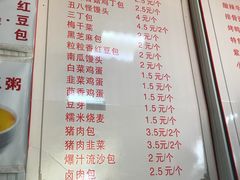 鸡丁包 2.5元/个
丑八怪馒头 2.5元/个
三丁包 2元/个
梅干菜 2元/个
黑芝麻包 2元/个
粒粒香红豆包 2元/个
南瓜馒头 2元/个
白菜鸡蛋 1.5元/个
韭菜鸡蛋 1.5元/个
茴香鸡蛋 1.5元/个
豆芽 1.5元/个
糯米烧麦 1.5元/个
猪肉包 3.5元/2个
猪肉韭菜 3.5元/2个
爆汁流沙包 2元/个
卤肉包 2.5元/个
红豆包
粥